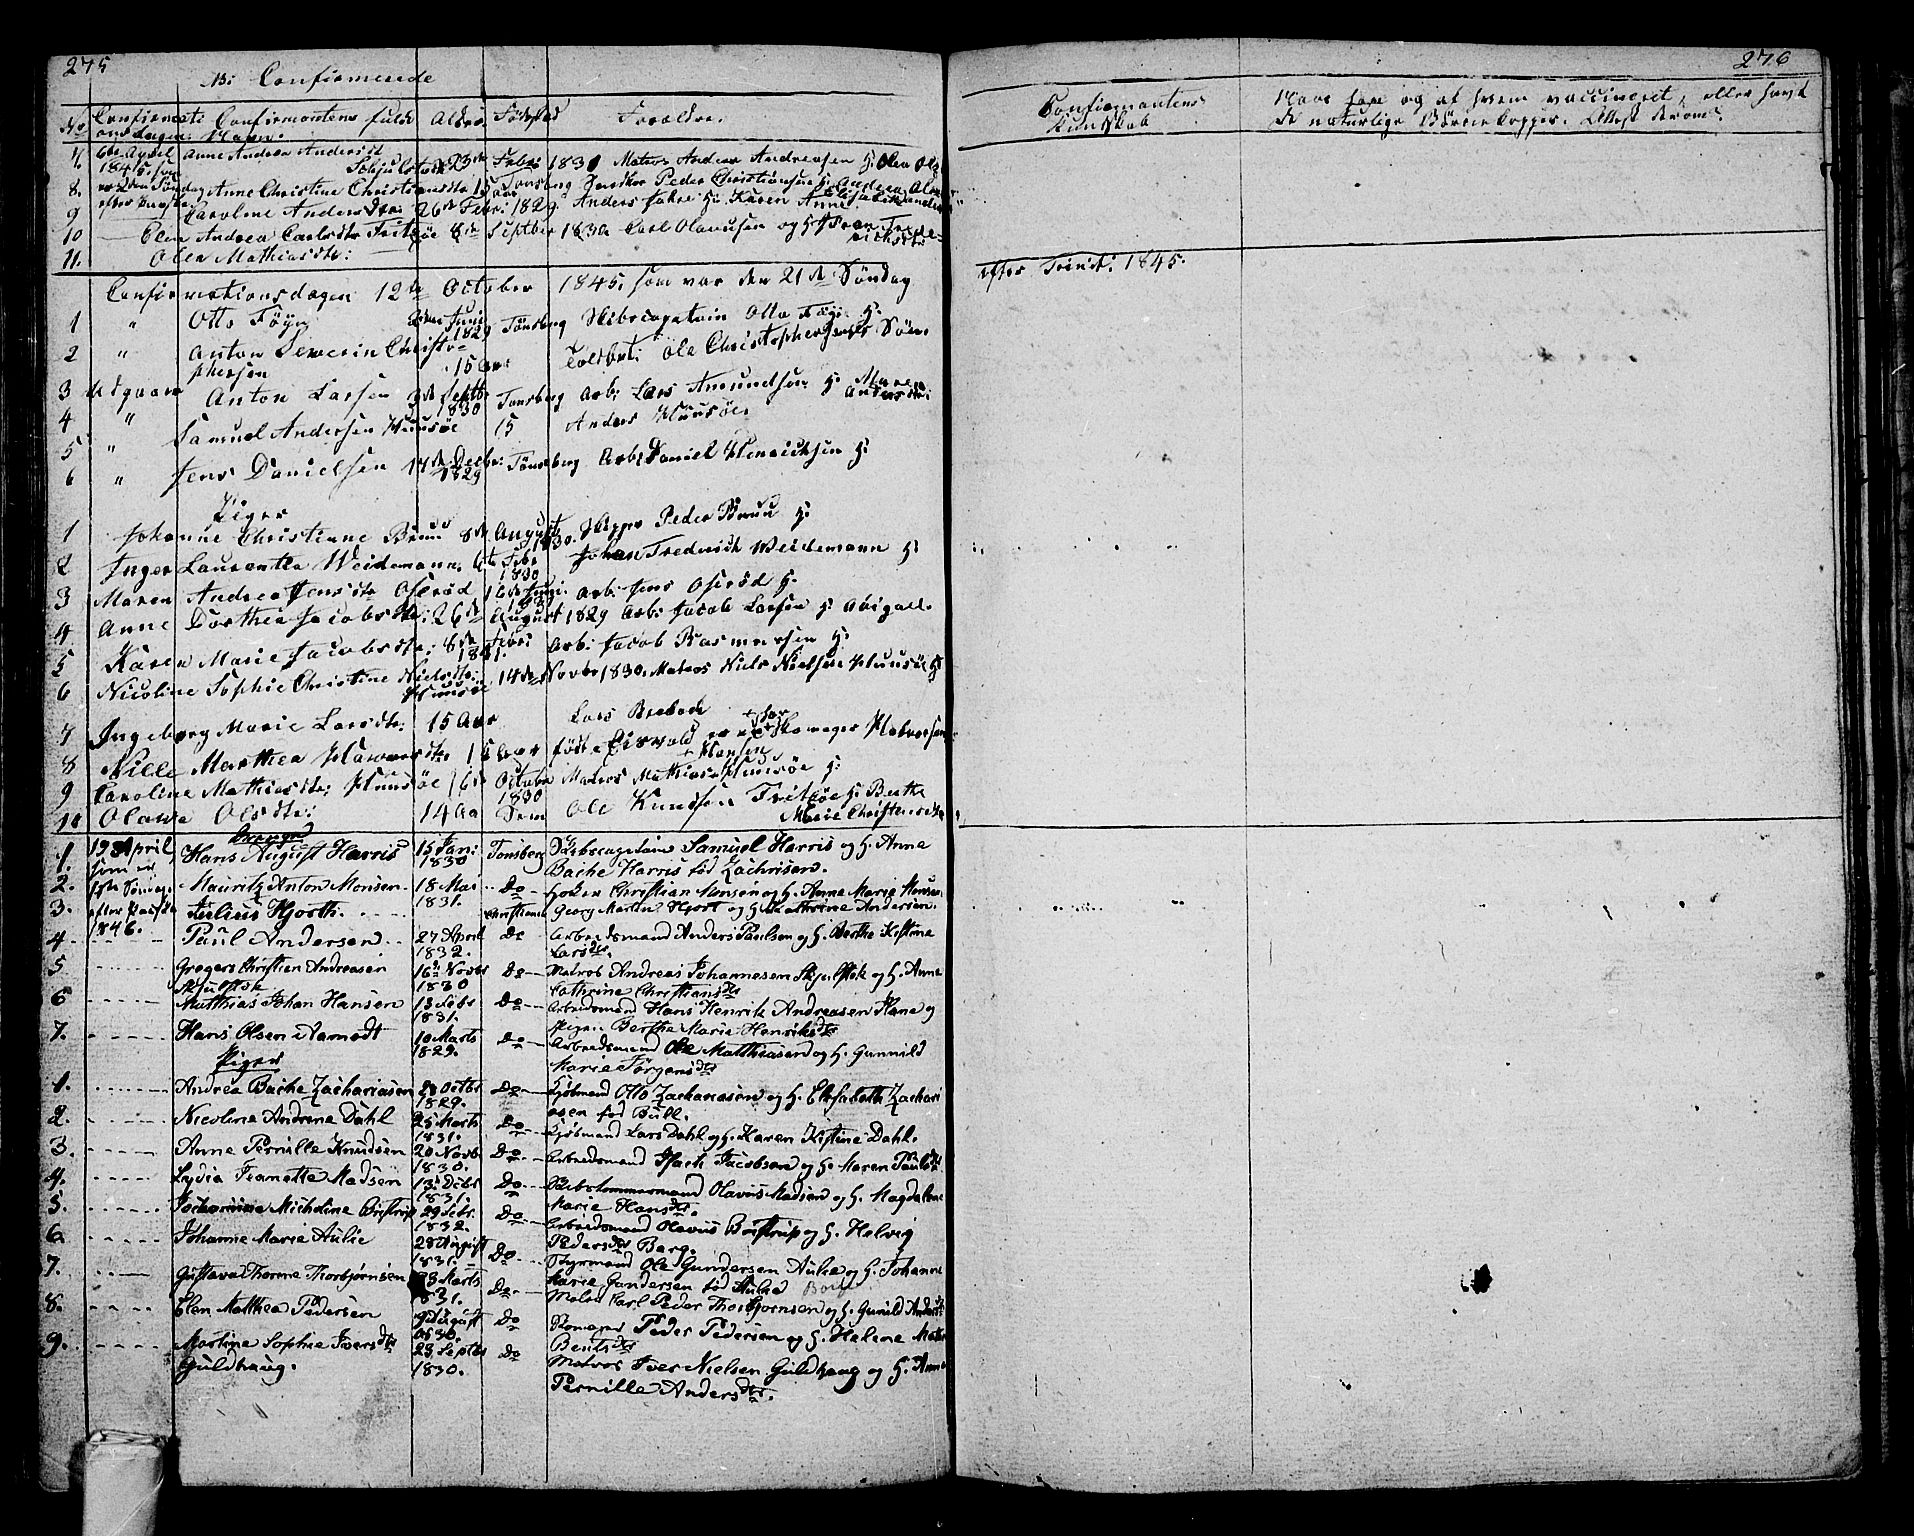 275
B: Confirmerede
No Confirmati onsdagen. Confirmantens fulde Navn. Alder. Fødested Forældre.
7. 6te April 1845. som Anne Andrea Andersdt Schjulstok 23de Febr: 1831 Matros Andreas Andreasen H: Olea Ols
8. er 2den Søndag Anne Christine Christiansdtr 15 Aar Tønsberg Peder Christiansen H: Andrea
9 efter Paaske Caroline Andersdtr: 26de Febr: 1829. Anders Fahre H: Karen Anne
10 Elen Andrea Carlsdtr Fritzøe 8de Septber 1830 Carl Olavusen og H: Frede-
richsdtr
11. Olea Mathiasdtr:
Confirmationsdagen 12te October 1845. som var den 21de Søndag
1 " Otto Føyn Juni 1829 Tønsberg Skibscapitain Otto Føyn H:
2 " Anton Severin Christo-
phersen 15 Aar Toldbet: Ole Christophersen
3 Udgaar Anton Larsen 3de Septbr 1830 Tønsberg Arb: Lars Amundsen H: Maren Andersdtr:
4 " Samuel Andersen Huusøe 15 Anders Huusøe
5 "
6 " Jens Danielsen 14de Decbr: 1829 Tønsberg Arb: Daniel Henrichsen H:
Piger
1 Johanne Christianne Bruun 8de August 1830. Skipper Peder Bruun H:
2 Inger Laurentha Weidemann. 6te Febr 1830 Johan Frederich Weidemann H:
3 Maren Andrea Jensdtr Oserød 16de Juni. Arb: Jens Oserød H:
4 Anne Dorthea Jacobsdtr: 26de August 1829 Arb: Jacob Larsen H: Abigael.
5 Karen Marie Jacobsdtr: 8de Febr: 1831. Arb: Jacob Rasmussen H:
6 Nicoline Sophie Christine Nielsdtr: Huusøe 14de Novbr 1830. Matros Niels Nielsen Huusøe H:
7 Ingeborg Marie Larsdtr: 15 Aar Lars Brebak
8 Nille Marthea 15 Aar født i Eidsvold Halvorsen
9 Caroline Mathiesdtr: Huusøe 16de October 1830 Matros Mathias Hansen Huusøe H:
10 Olava Olsdtr: 14 Aa Sem Ole Knudsen Fritzøe H: Berthe
Marie Christensdtr
Drenge
1. 19 April Hans August Harris 15 Jan: 1830 Tønsberg Skibscapitain Samuel Harris og H. Anne
Bache Harris fød Zachrisen.
2. som er 1ste Søndag Mauritz Anton Monsen. 18 Mai 1831. Do Høker Christian Monsen og H. Anne Marie Monsen
3. efter Paaske Julius Hjorth. Christiania Georg Martin Hjort og H. Kathrine Andersen.
4 1846. Paul Andersen 27 April 1832. Do Arbeidsmand Anders Paulsen og H. Berthe Kistine
Larsdtr.
5 Gregers Christian Andreasen
Skjulstok 16 Novbr 1830 Do Matros Andreas Johannesen Skjulstok og H. Anne
Cathrine Christiansdtr
6 Matthias Johan Hansen 13 Febr 1831. Do Arbeidsmand Hans Henrik Andreasen Hane og
Pigen Berthe Marie Henriksdtr
7. Hans Olsen Aamodt 10 Marts 1829. Do Arbeidsmand Ole Matthiasen og H. Gunnild
Marie Jørgensdtr
Piger
1. Andrea Bache Zachariasen 28 Octbr 1829. Do Kjøbmand Otto Zachariasen og H. Elisabeth Zachari
asen fød Bull.
2. Nicoline Andrine Dahl 25 Marts 1831. Do Kjøbmand Lars Dahl og H. Karen Kistine Dahl.
3. Anne Pernille Knudsen 20 Novb 1830. Do Arbeidsmand Isach Jacobsen og H. Maren Paulsdtr
4. Lydia Jeanette Madsen 13 Debr 1831. Do Skibstømmermand Olavus Madsen og H. Magdalene
Marie Hansdtr.
5. Micheline Børstrup 29 Febr. 1832. Do Arbeidsmand Olavus Børstrup og H. Helvig
Pedersdtr Berg.
6. Johanne Marie Aulie 28 August 1831. Do Styrmand Ole Gundersen Aulie og H. Johanne
Marie Gundersen fød Aulie
7. Gustava Thorine Thorbjørnsen 23 Marts 1831. Do Matro Carl Peder Thorbjørnsen og H. Gunild Andersdtr
8. Elen Matthea Pedersen 9 August 1830. Do Skomager Peder Pedersen og H. Helene
Bentsdtr
9. Martine Sophie Iversdtr
Guldhaug. 29 Septbr 1830. Do Matros Iver Nielsen Guldhaug og H. Anne
Pernille Andersdtr.
276
Confirmantens Kundskab
Naar og af hvem vaccineret, eller havt
de naturlige Børnekopper. Attest derom.
efter Trinit: 1845.